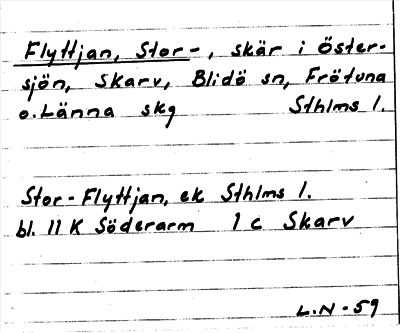 Flyttjan, Stor-, skär i Öster-
sjön, Skarv, Blidö sn, Frötuna
o. Länna skg Sthlms l.
Stor-Flyttjan, ek Sthlms l.
bl. 11 K Söderarm 1 c Skarv
L.N-59